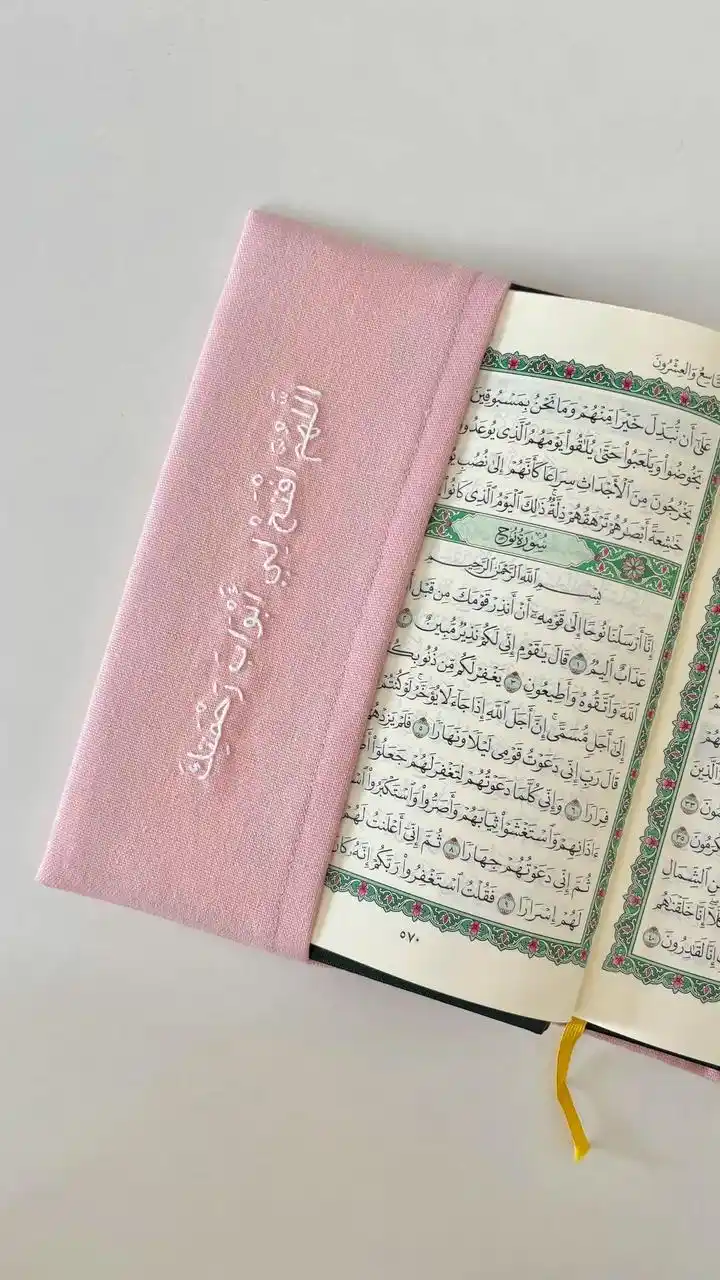 اللَّهُمَّ افْتَحْ لِي أَبْوَابَ رَحْمَتِكَ
وَالْعِشْرُونَ
عَلَىٰٓ أَن نُّبَدِّلَ خَيْرًا مِّنْهُمْ وَمَا نَحْنُ بِمَسْبُوقِينَ
يَخُوضُوا۟ وَيَلْعَبُوا۟ حَتَّىٰ يُلَٰقُوا۟ يَوْمَهُمُ ٱلَّذِى يُوعَدُونَ
يَخْرُجُونَ مِنَ ٱلْأَجْدَاثِ سِرَاعًا كَأَنَّهُمْ إِلَىٰ نُصُبٍ
خَٰشِعَةً أَبْصَٰرُهُمْ تَرْهَقُهُمْ ذِلَّةٌ ذَٰلِكَ ٱلْيَوْمُ ٱلَّذِى كَانُوا۟
سُورَةُ نُوحٍ
بِسْمِ ٱللَّهِ ٱلرَّحْمَٰنِ ٱلرَّحِيمِ
إِنَّآ أَرْسَلْنَا نُوحًا إِلَىٰ قَوْمِهِۦٓ أَنْ أَنذِرْ قَوْمَكَ مِن قَبْلِ
عَذَابٌ أَلِيمٌ ١ قَالَ يَٰقَوْمِ إِنِّى لَكُمْ نَذِيرٌ مُّبِينٌ ٢
ٱللَّهَ وَٱتَّقُوهُ وَأَطِيعُونِ ٣ يَغْفِرْ لَكُم مِّن ذُنُوبِكُمْ
إِلَىٰٓ أَجَلٍ مُّسَمًّى إِنَّ أَجَلَ ٱللَّهِ إِذَا جَآءَ لَا يُؤَخَّرُ لَوْ كُنتُمْ
قَالَ رَبِّ إِنِّى دَعَوْتُ قَوْمِى لَيْلًا وَنَهَارًا ٥ فَلَمْ يَزِدْهُمْ
فِرَارًا ٦ وَإِنِّى كُلَّمَا دَعَوْتُهُمْ لِتَغْفِرَ لَهُمْ جَعَلُوٓا۟
ءَاذَانِهِمْ وَٱسْتَغْشَوْا۟ ثِيَابَهُمْ وَأَصَرُّوا۟ وَٱسْتَكْبَرُوا۟
ثُمَّ إِنِّى دَعَوْتُهُمْ جِهَارًا ٨ ثُمَّ إِنِّىٓ أَعْلَنتُ لَهُمْ
لَهُمْ إِسْرَارًا ٩ فَقُلْتُ ٱسْتَغْفِرُوا۟ رَبَّكُمْ إِنَّهُۥ كَانَ
٥٧٠
ٱلشِّمَالِ
إِنَّا خَلَقْنَٰهُم
إِنَّا لَقَٰدِرُونَ ٤٠